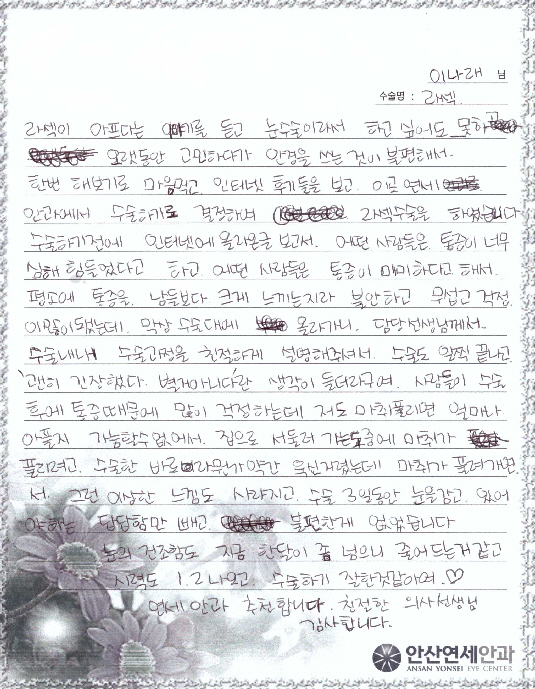 이나래 님
수술명 : 라섹
라섹이 아프다는 얘기를 듣고 눈수술이라서 하고 싶어도 못하고
오랫동안 고민하다가 안경을 쓰는 것이 불편해서.
한번 해보기로 마음먹고 인터넷 후기들을 보고. 이곳 연세
안과에서 수술하기로 결정하여 라섹수술을 하였습니다
수술하기전에 인터넷에 올라온글 보고서. 어떤 사람들은 통증이 너무
심해 힘들었다고 하고. 어떤 사람들은 통증이 미미하다고 해서.
평소에 통증을 남들보다 크게 느끼는지라 불안하고 무섭고 걱정
이많이됐는데. 막상 수술대에 올라가니. 담당선생님께서
수술내내 수술과정을 친절하게 설명해주셔서. 수술도 일찍 끝나고
'괜히 긴장했다. 별거아니다'란 생각이 들더라구여. 사람들이 수술
후에 통증때문에 많이 걱정하는데 저도 마취풀리면 얼마나
아플지 가늠할수없어서. 집으로 서둘러 가는도중에 마취가
풀리려고. 수술한 바로 약간 욱신거렸는데 마취가 풀려가면
서. 그런 이상한 느낌도 사라지고. 수술 3일동안 눈을감고 있어
야하는 답답함만 빼고 불편한게 없었습니다
눈의 건조함도 지금 한달이 좀 넘으니 줄어드는거 같고
시력도 1.2 나오고. 수술하기 잘한것같아여.♡
연세 안과 추천합니다. 친절한 의사선생님
감사합니다.
안산연세안과
ANSAN YONSEI EYE CENTER